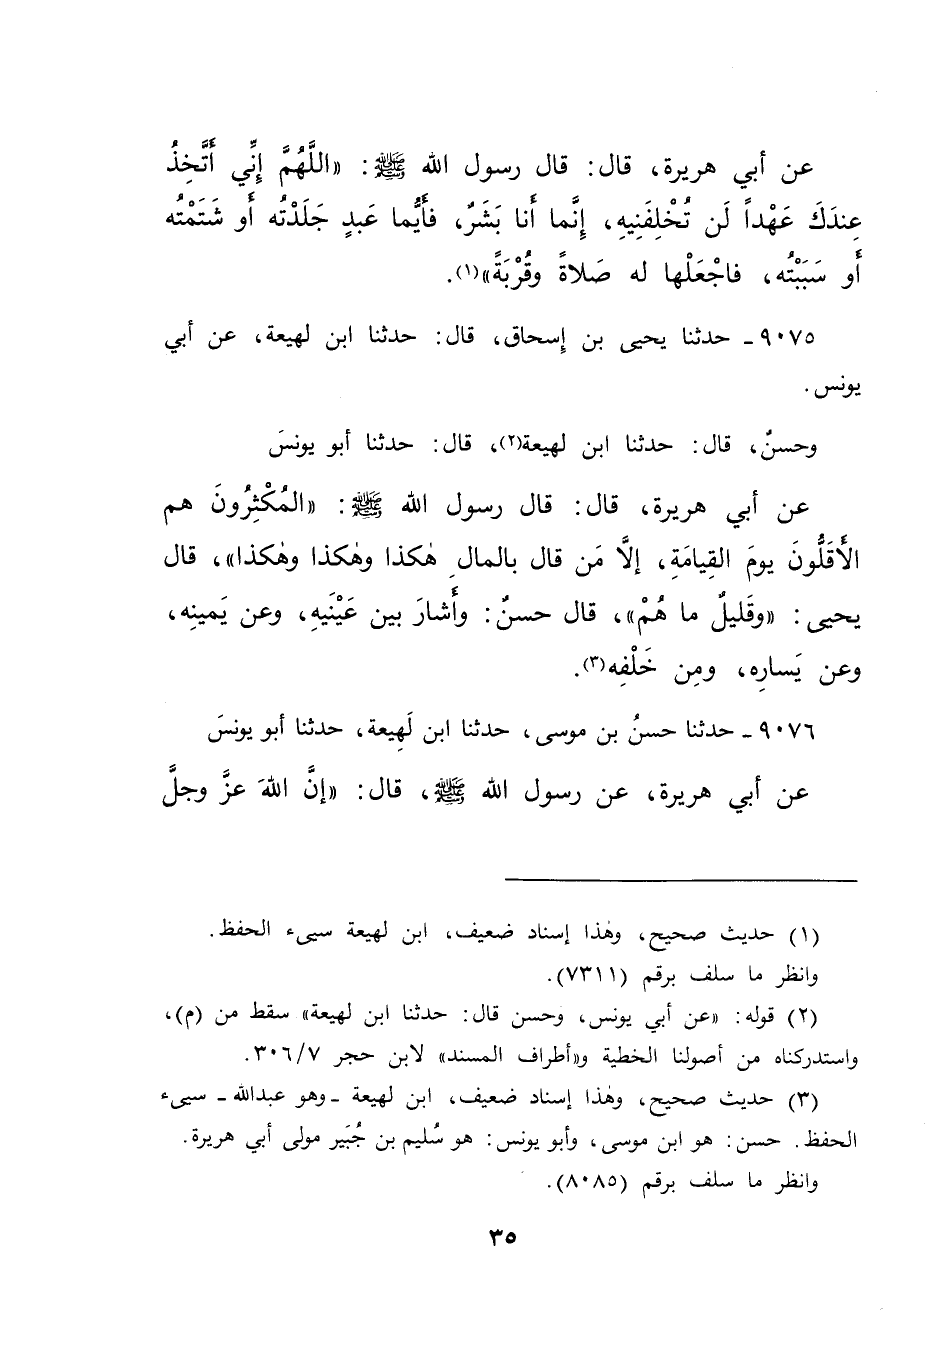 عن أبي هريرة، قال: قال رسول الله ﷺ: «اللَّهُمَّ إِنِّي أَتَّخِذُ
عِندَكَ عَهْداً لَن تُخْلِفَنِيهِ، إِنَّما أَنا بَشَرٌ، فأَيُّما عَبدٍ جَلَدْتُه أَو شَتَمْتُه
أَو سَبَبْتُه، فاجْعَلْها له صَلاةً وقُرْبَةً»(١).
٩٠٧٥ ـ حدثنا يحيى بن إِسحاق، قال: حدثنا ابن لهيعة، عن أبي
يونس.
وحسنٌ، قال: حدثنا ابن لهيعة(٢)، قال: حدثنا أبو يونسَ
عن أبي هريرة، قال: قال رسول الله ﷺ: «المُكْثِرُونَ هم
الأَقَلُّونَ يومَ القِيامَةِ، إلَّا مَن قال بالمالِ هٰكذا وهٰكذا وهٰكذا»، قال
يحيى: «وقَليلٌ ما هُمْ»، قال حسنٌ: وأَشارَ بين عَيْنَيهِ، وعن يَمينِه،
وعن يَسارِه، ومِن خَلْفِه(٣).
٩٠٧٦ ـ حدثنا حسنُ بن موسى، حدثنا ابن لَهِيعة، حدثنا أبو يونسَ
عن أبي هريرة، عن رسول الله ﷺ، قال: «إنَّ اللهَ عزَّ وجلَّ
(١) حديث صحيح، وهٰذا إسناد ضعيف، ابن لهيعة سيىء الحفظ.
وانظر ما سلف برقم (٧٣١١).
(٢) قوله: «عن أبي يونس، وحسن قال: حدثنا ابن لهيعة» سقط من (م)،
واستدركناه من أصولنا الخطية و«أطراف المسند» لابن حجر ٣٠٦/٧.
(٣) حديث صحيح، وهٰذا إسناد ضعيف، ابن لهيعة ـ وهو عبدالله ـ سيىء
الحفظ. حسن: هو ابن موسى، وأبو يونس: هو سُليم بن جُبَير مولى أبي هريرة.
وانظر ما سلف برقم (٨٠٨٥).
٣٥